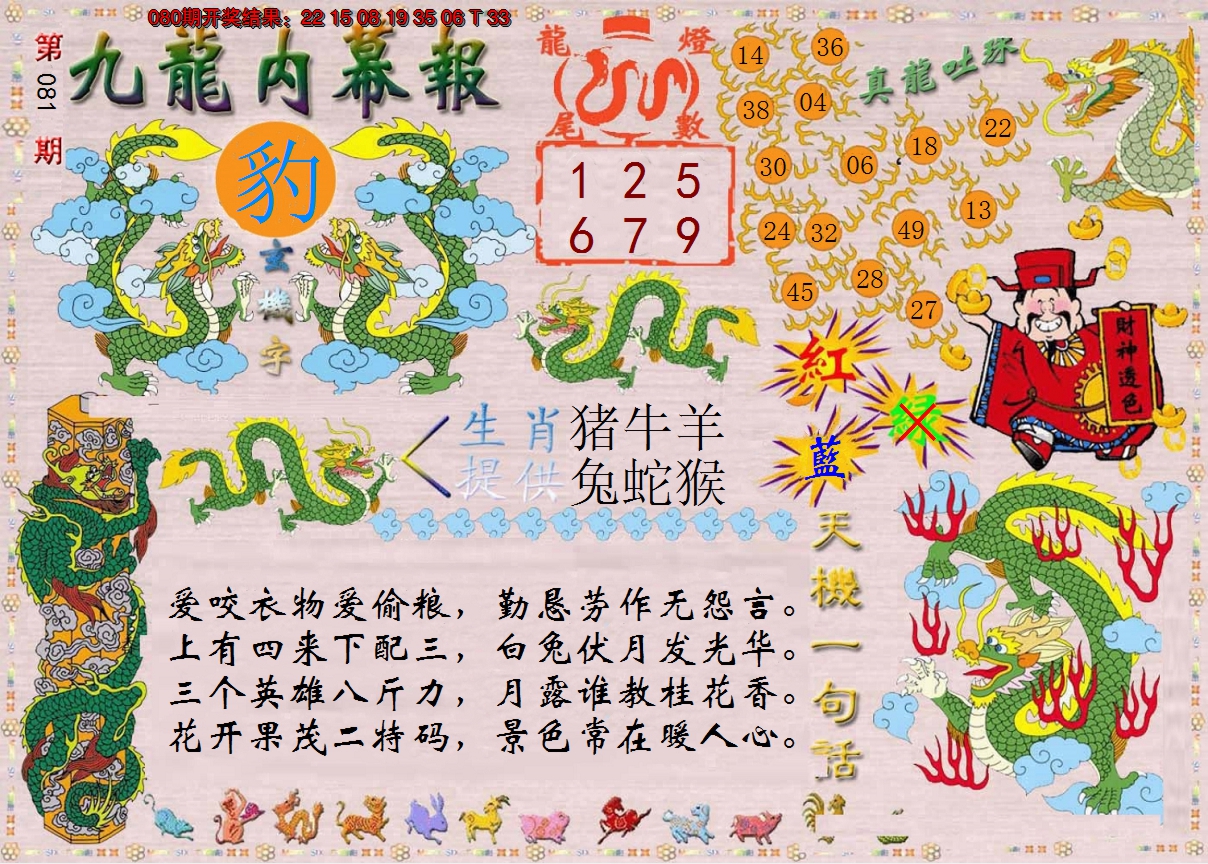 080期开奖结果：22 15 08 19 35 06 T 33
第081期
九龍内幕報
豹
玄機字
龍燈尾數
1 2 5
6 7 9
真龍吐珠
14
36
38
04
30
06
18
22
24
32
49
13
45
28
27
紅
绿
藍
財神透色
生肖 猪牛羊
提供 兔蛇猴
爱咬衣物爱偷粮，勤恳劳作无怨言。
上有四来下配三，白兔伏月发光华。
三个英雄八斤力，月露谁教桂花香。
花开果茂二特码，景色常在暖人心。
天機一句話